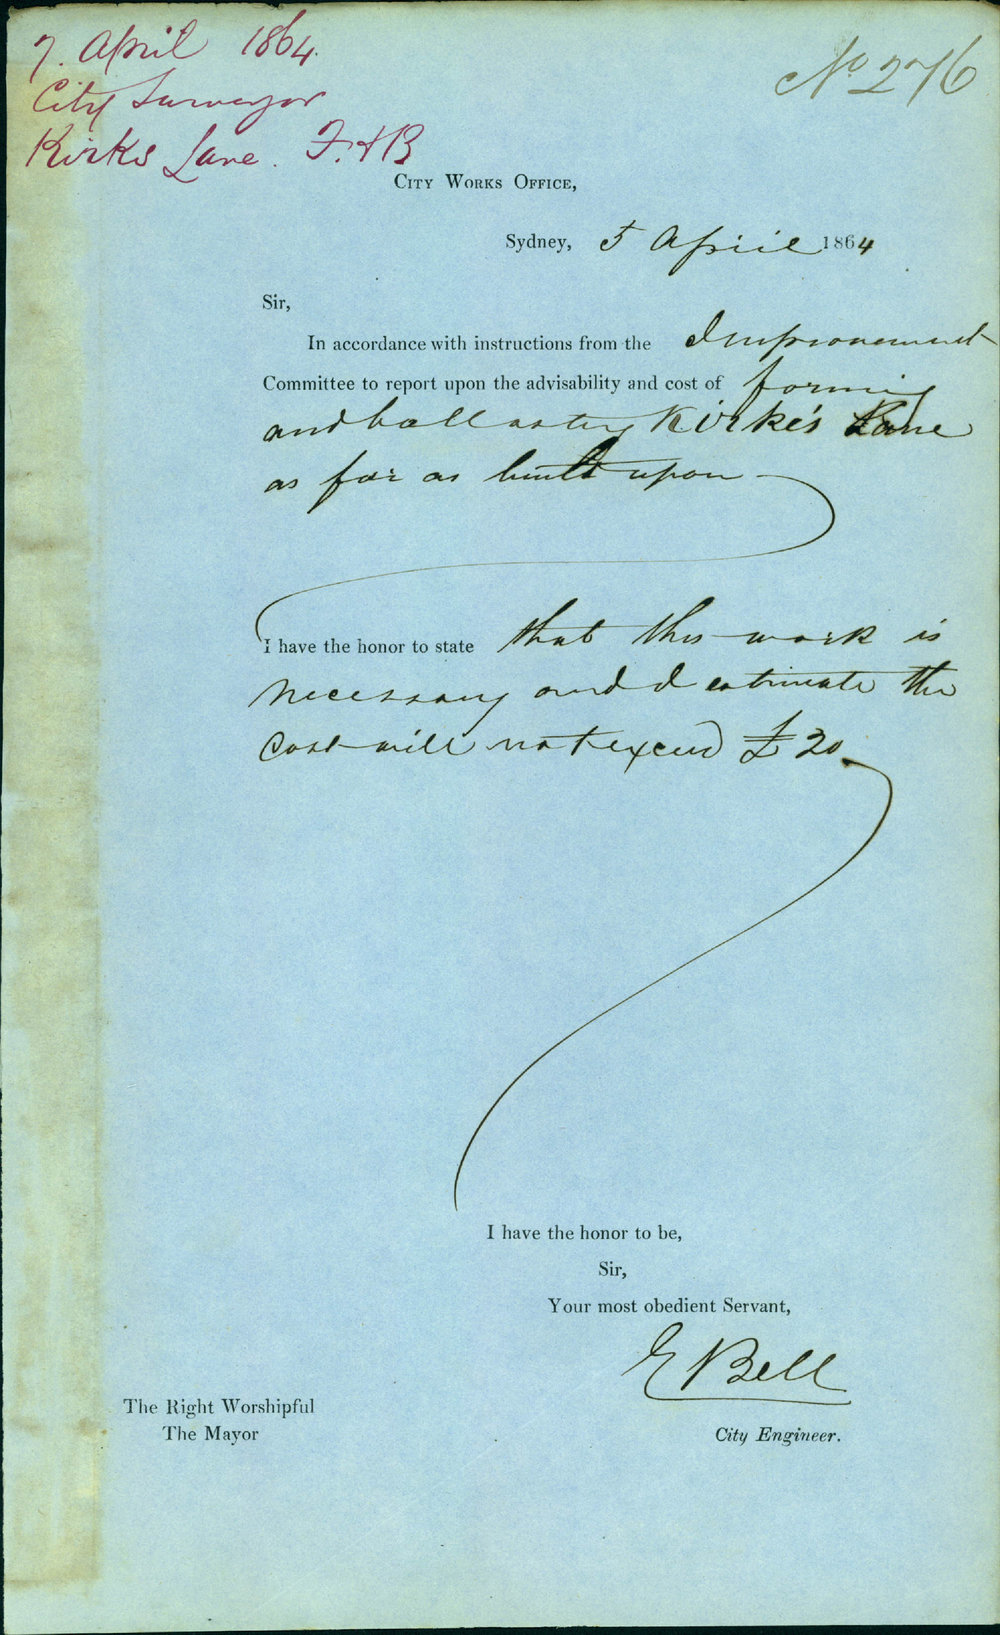 7. April 1864.
City Surveyor
Kirks Lane. F. & B
No 276
City Works Office,
Sydney, 5 April 1864
Sir,
In accordance with instructions from the Improvement
Committee to report upon the advisability and cost of forming
and ballasting Kirke's Lane
as far as built upon
I have the honor to state that this work is
necessary and I estimate the
cost will not exceed £20
I have the honor to be,
Sir,
Your most obedient Servant,
E Bell
City Engineer.
The Right Worshipful
The Mayor